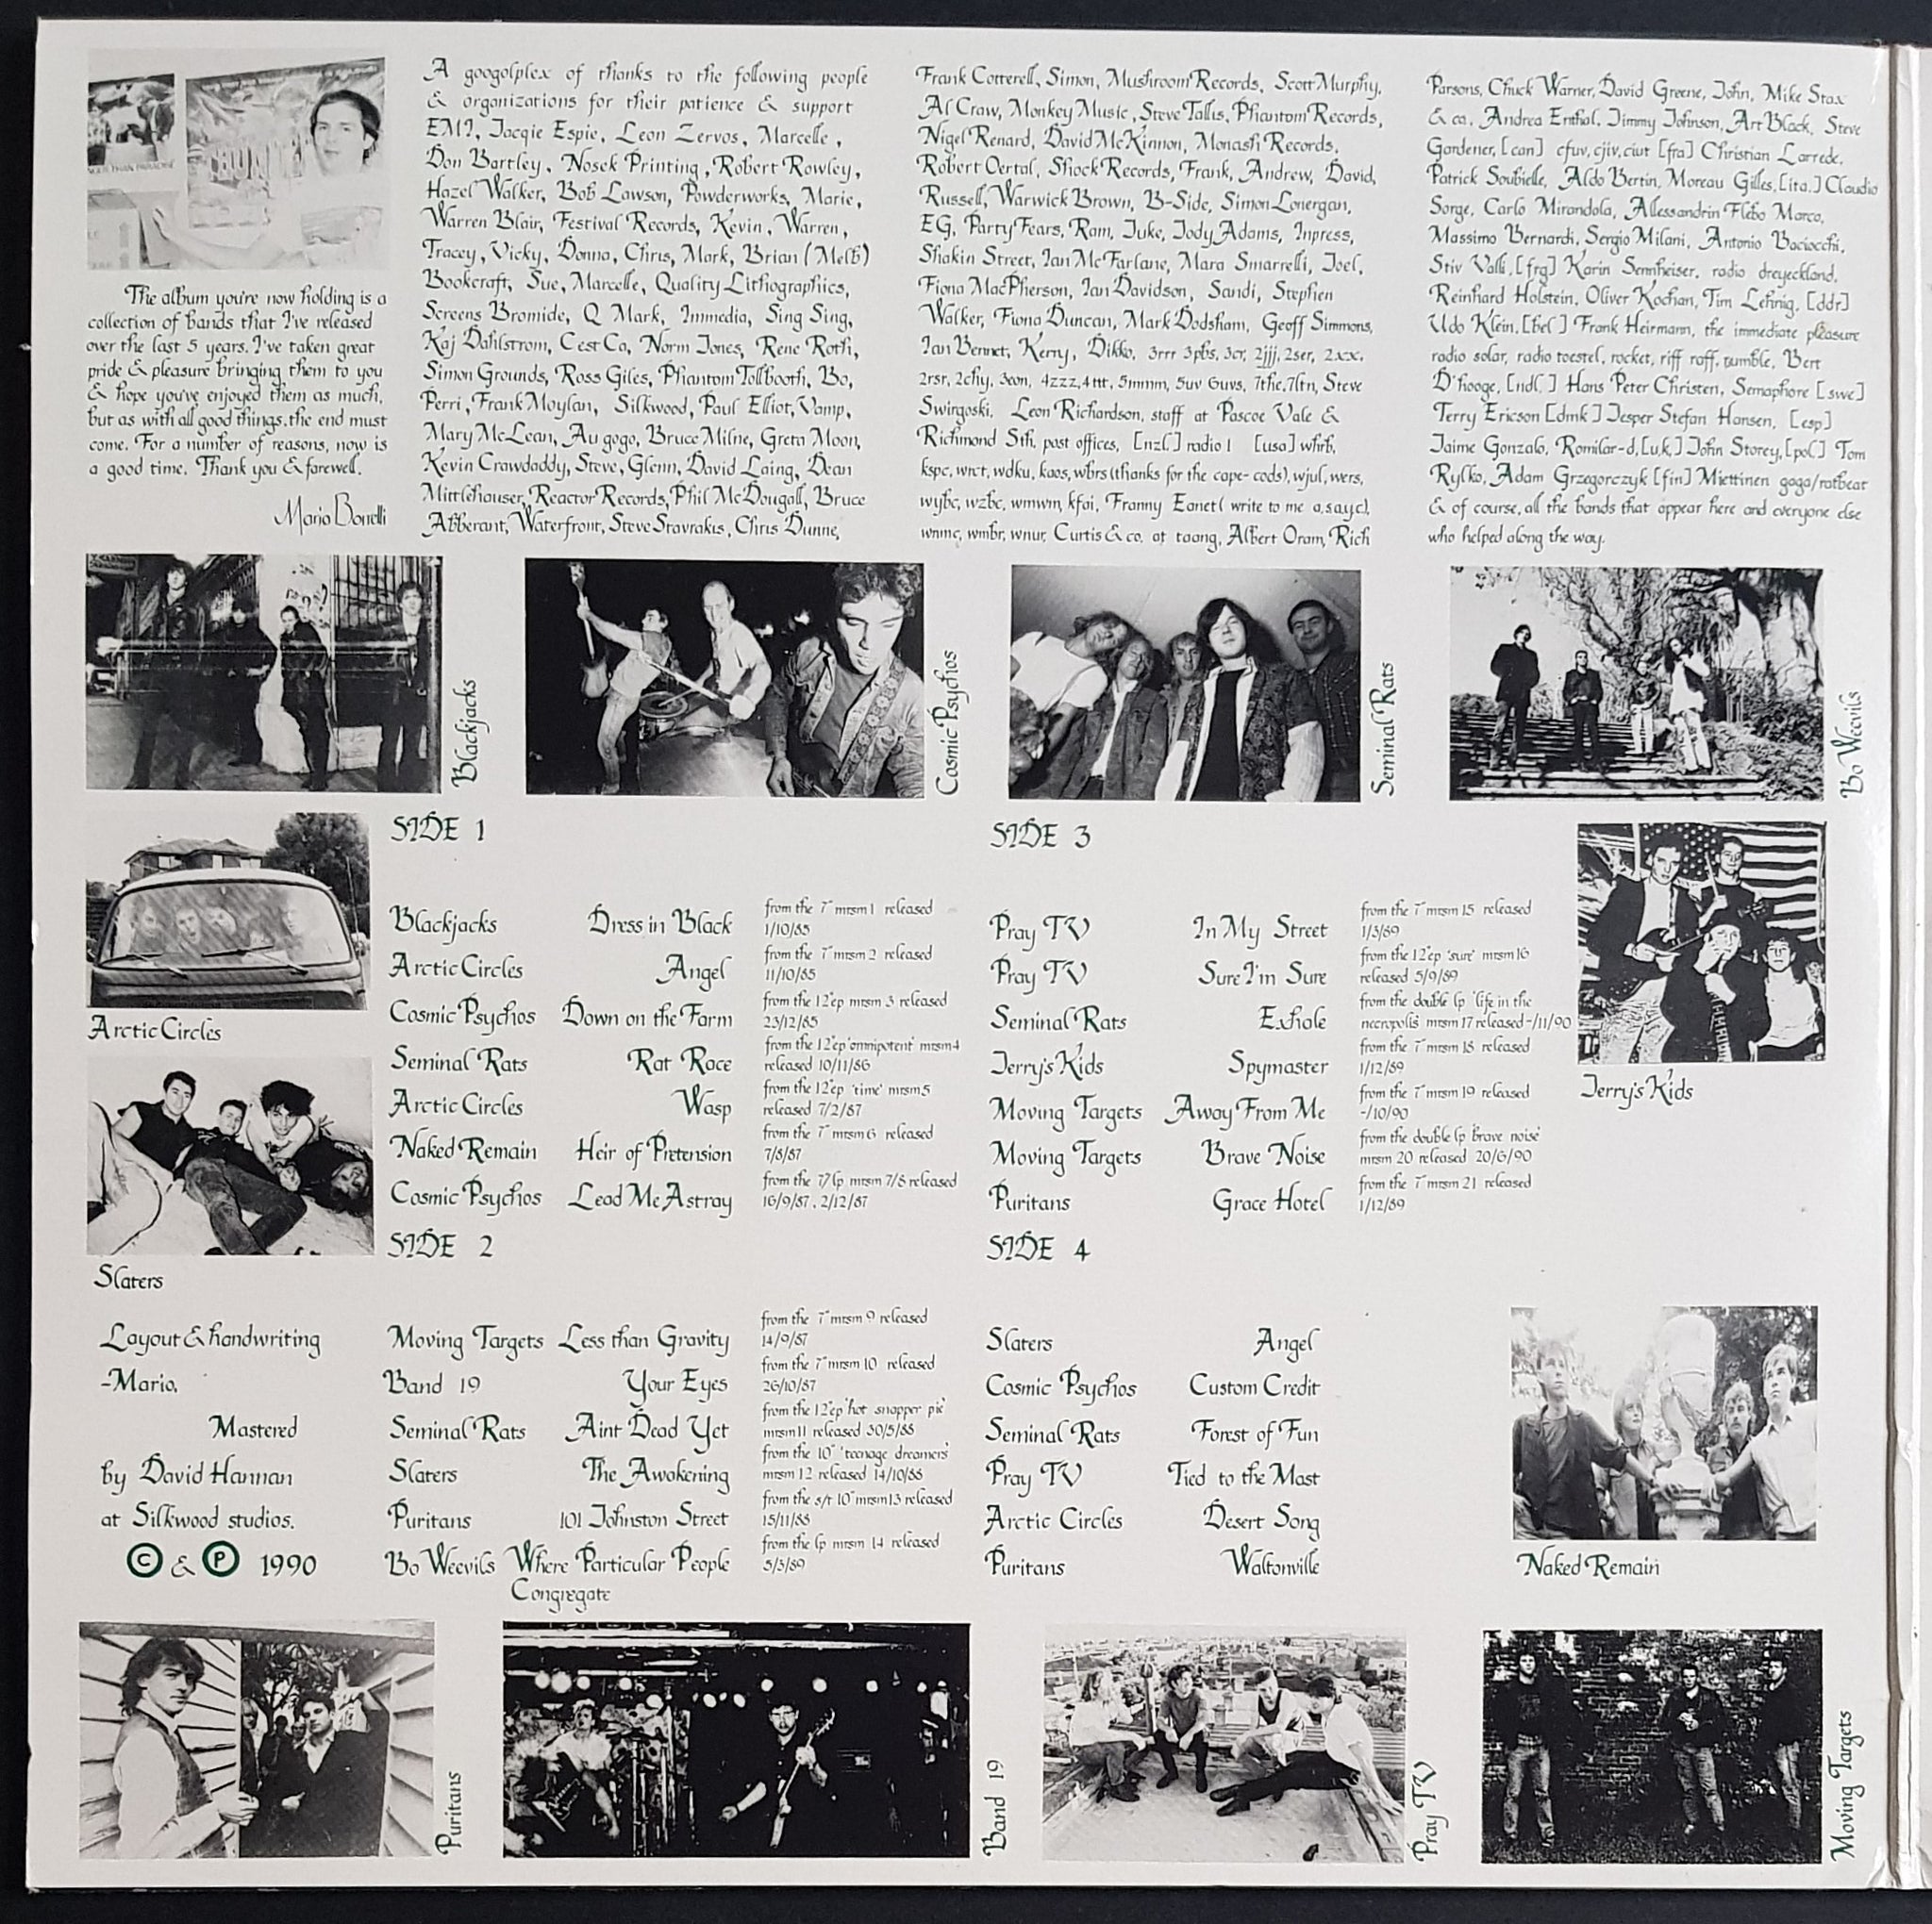 The album you're now holding is a
collection of bands that I've released
over the last 5 years. I've taken great
pride & pleasure bringing them to you
& hope you've enjoyed them as much,
but as with all good things, the end must
come. For a number of reasons, now is
a good time. Thank you & farewell.
Mario Bonelli
A googolplex of thanks to the following people
& organizations for their patience & support
EMI, Jacqie Espie, Leon Zervos, Marcelle,
Don Bartley, Nosek Printing, Robert Rowley,
Hazel Walker, Bob Lawson, Powderworks, Marie,
Warren Blair, Festival Records, Kevin, Warren,
Tracey, Vicky, Donna, Chris, Mark, Brian (Melb)
Bookcraft, Sue, Marcelle, Quality Lithographics,
Screens Bromide, Q Mark, Immedia, Sing Sing,
Kaj Dahlstrom, Cest Co, Norm Jones, Rene Roth,
Simon Grounds, Ross Giles, Phantom Tollbooth, Bo,
Perri, Frank Moylan, Silkwood, Paul Elliot, Vamp,
Mary McLean, Au gogo, Bruce Milne, Greta Moon,
Kevin Crawdaddy, Steve, Glenn, David Laing, Dean
Mittlehauser, Reactor Records, Phil McDougall, Bruce
Abberant, Waterfront, Steve Stavrakis, Chris Dunne,
Frank Cotterell, Simon, Mushroom Records, Scott Murphy,
Al Craw, Monkey Music, Steve Tallis, Phantom Records,
Nigel Renard, David McKinnon, Monash Records,
Robert Oertal, Shock Records, Frank, Andrew, David,
Russell, Warwick Brown, B-Side, Simon Lonergan,
EG, Party Fears, Ram, Juke, Jody Adams, Inpress,
Shakin Street, Ian McFarlane, Mara Smarrelli, Joel,
Fiona MacPherson, Ian Davidson, Sandi, Stephen
Walker, Fiona Duncan, Mark Dodsham, Geoff Simmons,
Ian Bennet, Kerry, Dikko, 3rrr 3pbs, 3cr, 2jjj, 2ser, 2xx,
2rsr, 2chy, 3eon, 4zzz, 4ttt, 5mmm, 5uv 6uvs, 7the, 7ltn, Steve
Swirgoski, Leon Richardson, staff at Pascoe Vale &
Richmond Sth, post offices, [nzl.] radio 1 [usa] whrb,
kspc, wrct, wdku, kaos, wbrs (thanks for the cape-cods), wjul, wers,
wybc, wzbc, wmwm, kfai, Franny Eanet (write to me a.s.a.y.c),
wnmc, wmbr, wnur, Curtis & co. at taang, Albert Oram, Rich
Parsons, Chuck Warner, David Greene, John, Mike Stax
& co, Andrea Enthal, Jimmy Johnson, Art Black, Steve
Gardener, [can] cfuv, cjiv, ciut [fra] Christian Larrede,
Patrick Soubielle, Aldo Bertin, Moreau Gilles, [ita.] Claudio
Sorge, Carlo Mirandola, Allessandrin Flebo Marco,
Massimo Bernardi, Sergio Milani, Antonio Baciocchi,
Stiv Valli, [frg] Karin Sennheiser, radio dreyeckland,
Reinhard Holstein, Oliver Kochan, Tim Lehnig, [ddr]
Udo Klein, [bel] Frank Heirmann, the immediate pleasure
radio solar, radio toestel, rocket, riff raff, tumble, Bert
D'hooge, [ndl.] Hans Peter Christen, Semaphore [swe]
Terry Ericson [dmk] Jesper Stefan Hansen, [esp]
Jaime Gonzalo, Romilar-d, [u.k,] John Storey, [pol] Tom
Rylko, Adam Grzegorczyk [fin] Miettinen gaga/ratbeat
& of course, all the bands that appear here and everyone else
who helped along the way.
Blackjacks
Cosmic Psychos
Seminal Rats
Bo Weevils
Arctic Circles
Slaters
Jerry's Kids
SIDE 1
Blackjacks Dress in Black from the 7" mrsm 1 released 1/10/85
Arctic Circles Angel from the 7" mrsm 2 released 11/10/85
Cosmic Psychos Down on the Farm from the 12"ep mrsm 3 released 23/12/85
Seminal Rats Rat Race from the 12"ep 'omnipotent' mrsm4 released 10/11/86
Arctic Circles Wasp from the 12"ep 'time' mrsm5 released 7/2/87
Naked Remain Heir of Pretension from the 7" mrsm 6 released 7/8/87
Cosmic Psychos Lead Me Astray from the 7"/lp mrsm 7/8 released 16/9/87, 2/12/87
SIDE 2
Moving Targets Less than Gravity from the 7" mrsm 9 released 14/9/87
Band 19 Your Eyes from the 7" mrsm 10 released 26/10/87
Seminal Rats Aint Dead Yet from the 12"ep 'hot snapper pie' mrsm11 released 30/5/88
Slaters The Awakening from the 10" 'teenage dreamers' mrsm 12 released 14/10/88
Puritans 101 Johnston Street from the s/t 10" mrsm13 released 15/11/88
Bo Weevils Where Particular People Congregate from the lp mrsm 14 released 5/3/89
SIDE 3
Pray TV In My Street from the 7" mrsm 15 released 1/3/89
Pray TV Sure I'm Sure from the 12"ep 'sure' mrsm16 released 5/9/89
Seminal Rats Exhole from the double lp 'life in the necropolis' mrsm 17 released -/11/90
Jerry's Kids Spymaster from the 7" mrsm 18 released 1/12/89
Moving Targets Away From Me from the 7" mrsm 19 released -/10/90
Moving Targets Brave Noise from the double lp 'brave noise' mrsm 20 released 20/6/90
Puritans Grace Hotel from the 7" mrsm 21 released 1/12/89
SIDE 4
Slaters Angel
Cosmic Psychos Custom Credit
Seminal Rats Forest of Fun
Pray TV Tied to the Mast
Arctic Circles Desert Song
Puritans Waltonville
Layout & handwriting
-Mario.
Mastered
by David Hannan
at Silkwood studios.
© & ℗ 1990
Naked Remain
Puritans
Band 19
Pray TV
Moving Targets